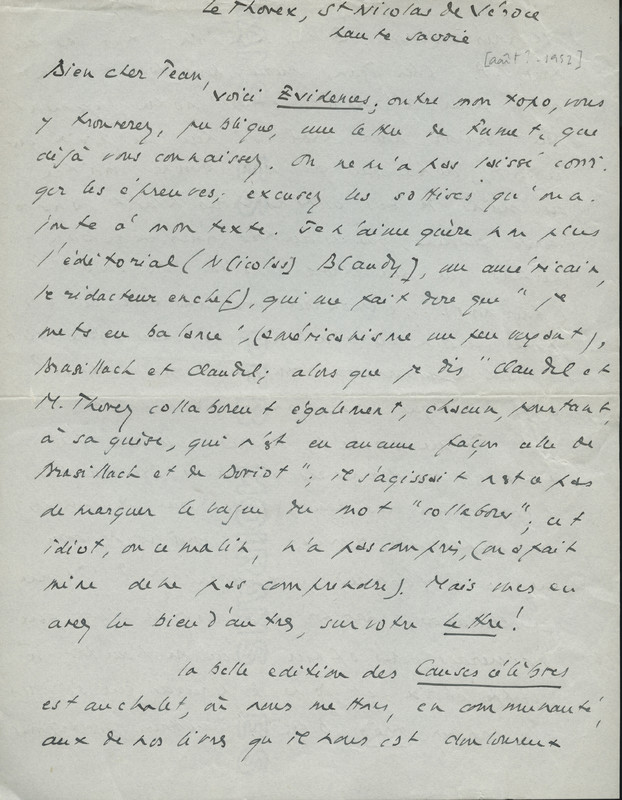 Le Thorex, St Nicolas de Véroce
Haute Savoie
[août ? - 1952]
Bien cher Jean,
Voici Évidences; outre mon topo, vous
y trouverez, publique, une lettre de Fumet, que
déjà vous connaissez. On ne m'a pas laissé corri-
ger les épreuves; excusez les sottises qu'on a
joute à mon texte. Je n'aime guère non plus
l'éditorial (N[icolas] Blaudy], un américain,
le rédacteur en chef), qui me fait dire que "je
mets en balance", (américanisme un peu voyant),
Brasillach et Claudel; alors que je dis "Claudel et
M. Thorez collaborent également, chacun, pourtant,
à sa guise, qui n'est en aucune façon celle de
Brasillach et de Doriot"; il s'agissait n'est-ce pas
de marquer le vague du mot "collaborer"; cet
idiot, ou ce malin, n'a pas compris, (ou a fait
mine de ne pas comprendre). Mais vous en
avez lu bien d'autres, sur votre Lettre!
La belle edition des Causes célèbres
est au chalet, où nous mettons, en communauté,
ceux de nos livres qu'il nous est douloureux